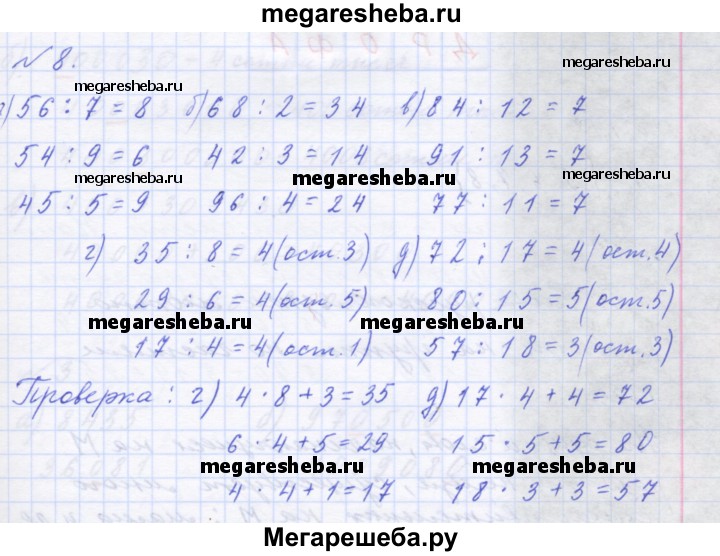 megaresheba.ru
№ 8.
megaresheba.ru megaresheba.ru
а) 56 : 7 = 8 б) 68 : 2 = 34 в) 84 : 12 = 7
54 : 9 = 6 42 : 3 = 14 91 : 13 = 7
megaresheba.ru megaresheba.ru megaresheba.ru
45 : 5 = 9 96 : 4 = 24 77 : 11 = 7
г) 35 : 8 = 4 (ост. 3) д) 72 : 17 = 4 (ост. 4)
29 : 6 = 4 (ост. 5) 80 : 15 = 5 (ост. 5)
megaresheba.ru megaresheba.ru
17 : 4 = 4 (ост. 1) 57 : 18 = 3 (ост. 3)
Проверка : г) 4 · 8 + 3 = 35 д) 17 · 4 + 4 = 72
6 · 4 + 5 = 29 15 · 5 + 5 = 80
megaresheba.ru megaresheba.ru
4 · 4 + 1 = 17 18 · 3 + 3 = 57
Мегарешеба.ру